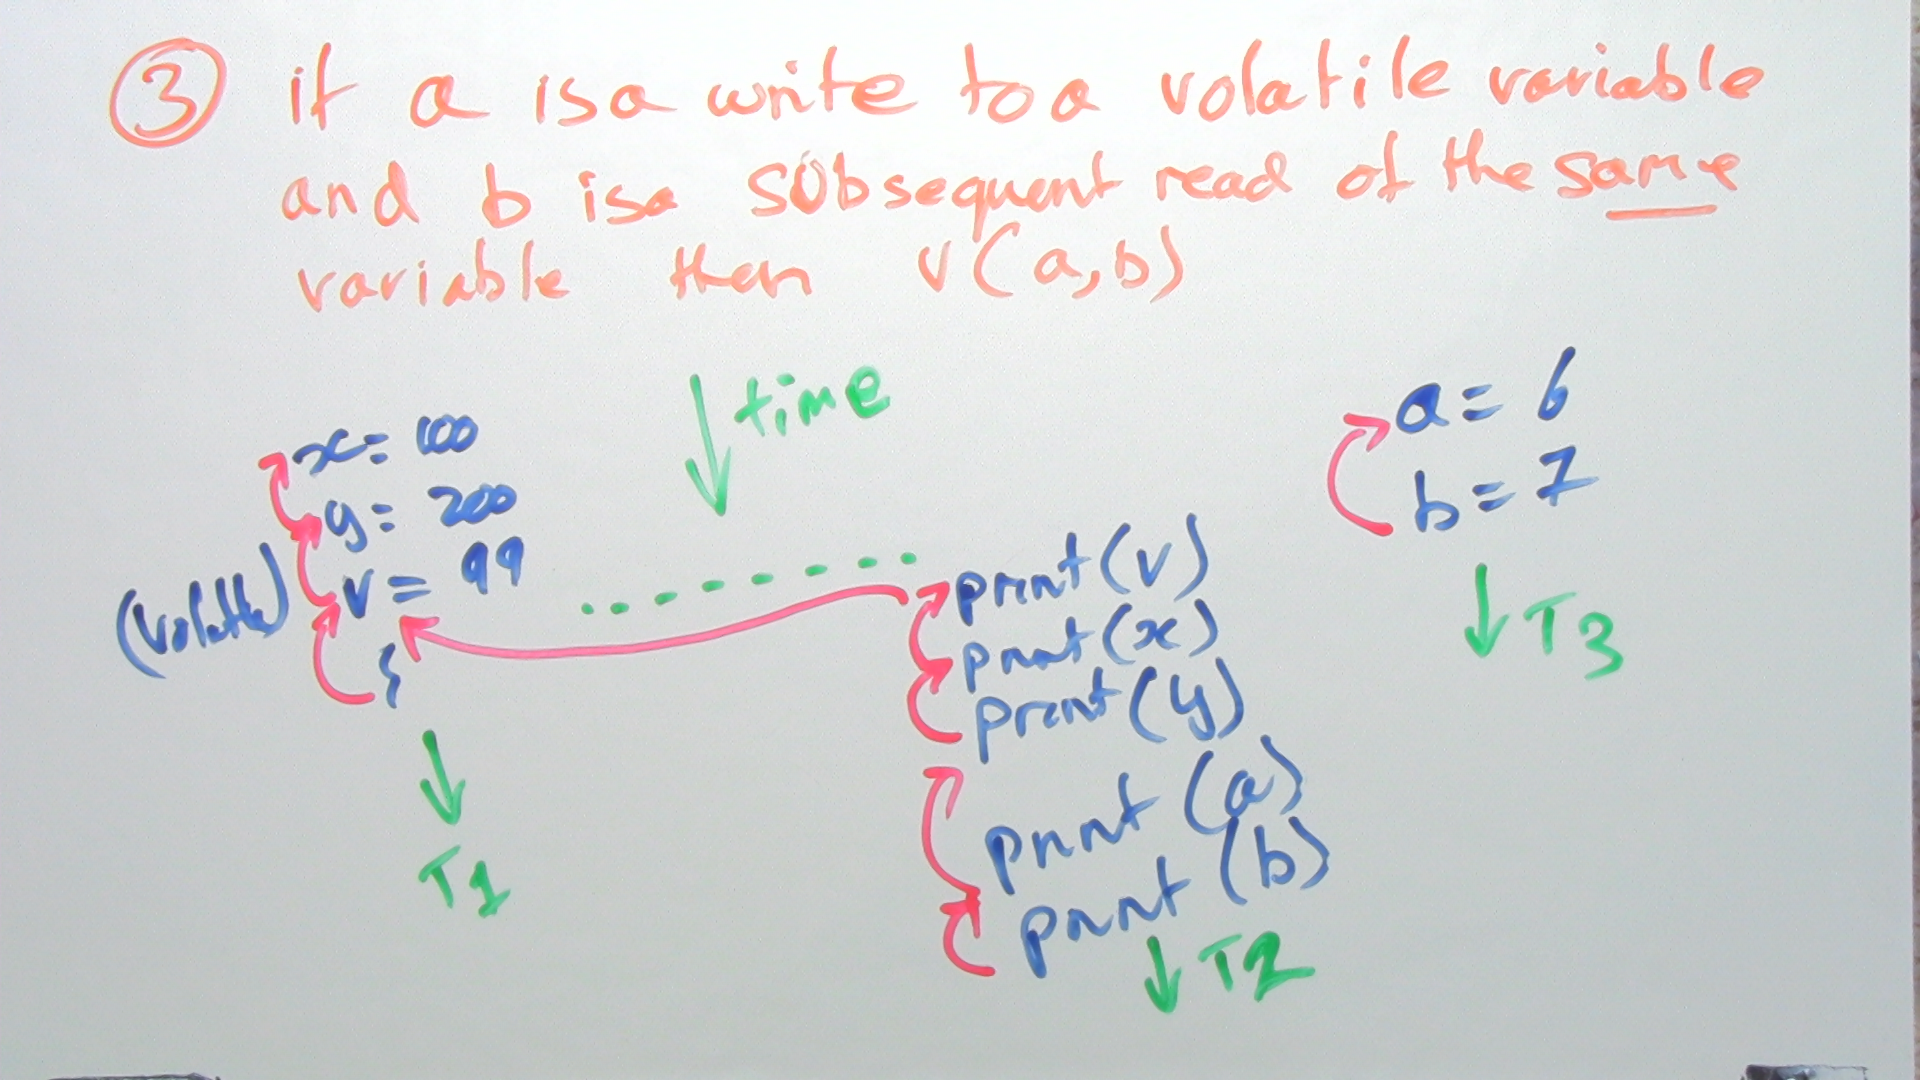 3 if a is a write to a volatile variable
and b is a subsequent read of the same
variable then v(a,b)
time
x= 100
y= 200
(volatile) v= 99
T1
print(v)
print(x)
print(y)
print(a)
print(b)
T2
a= 6
b= 7
T3